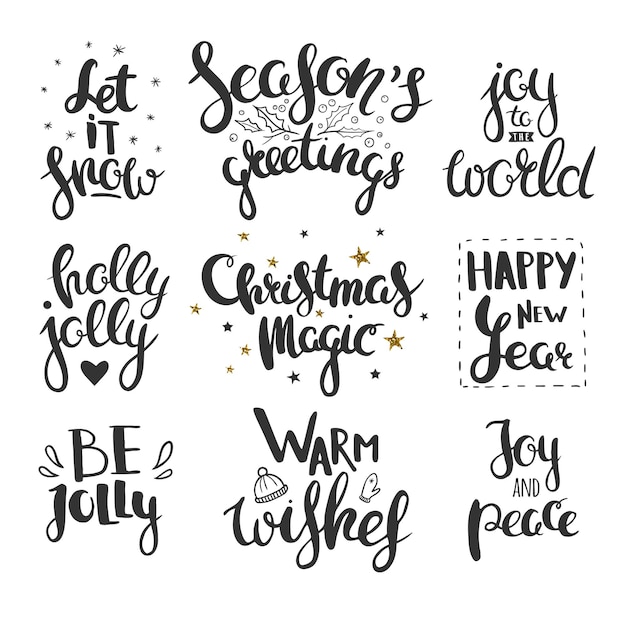 Let
IT
Snow
SeaSon's
greetings
joy
to
THE
world
holly
jolly
Christmas
Magic
HAPPY
NEW
Year
BE
JOLLY
WARM
wishes
Joy
AND
peace